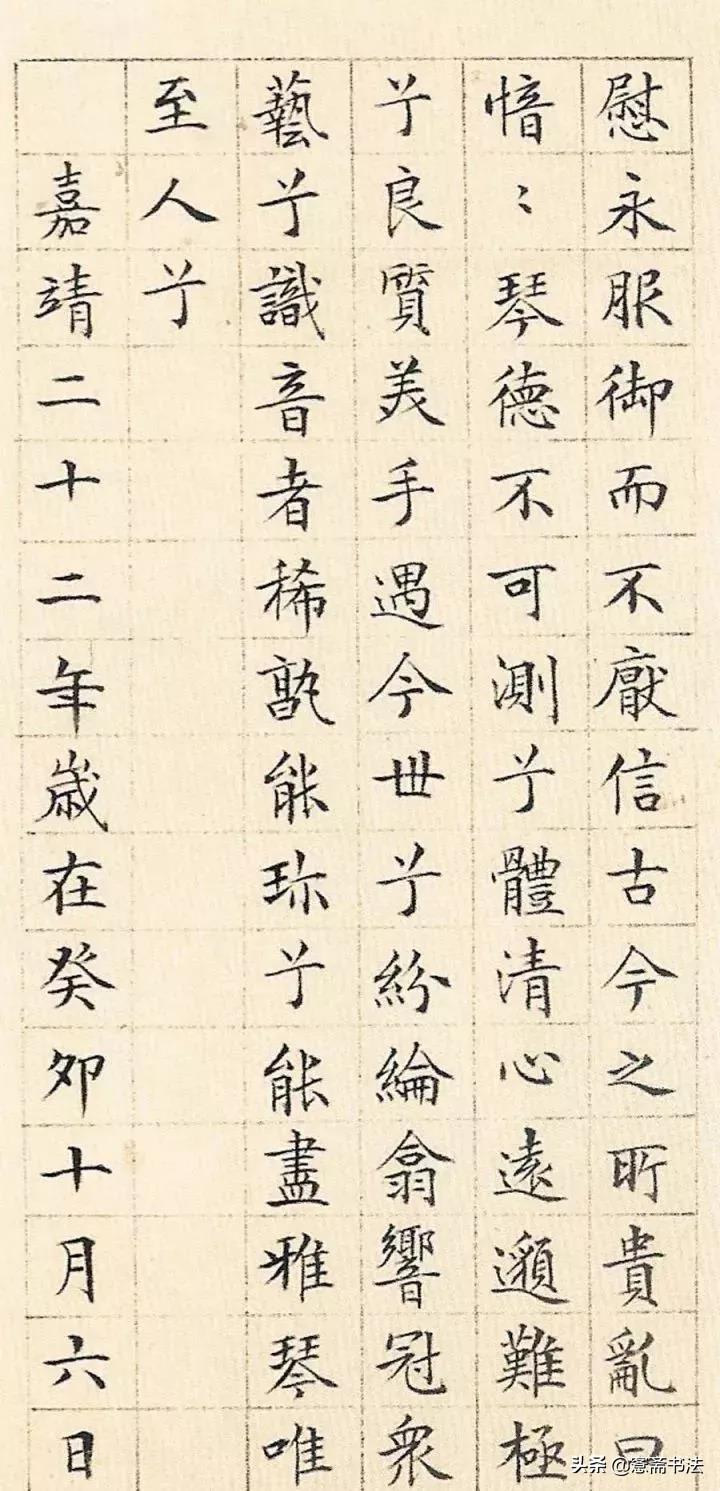 慰永服御而不厭信古今之所貴亂曰
愔〻琴德不可測兮體清心遠邈難極
兮良質美手遇今世兮紛綸翕響冠衆
藝兮識音者稀孰能珎兮能盡雅琴唯
至人兮
嘉靖二十二年歲在癸卯十月六日
头条@愙斋书法